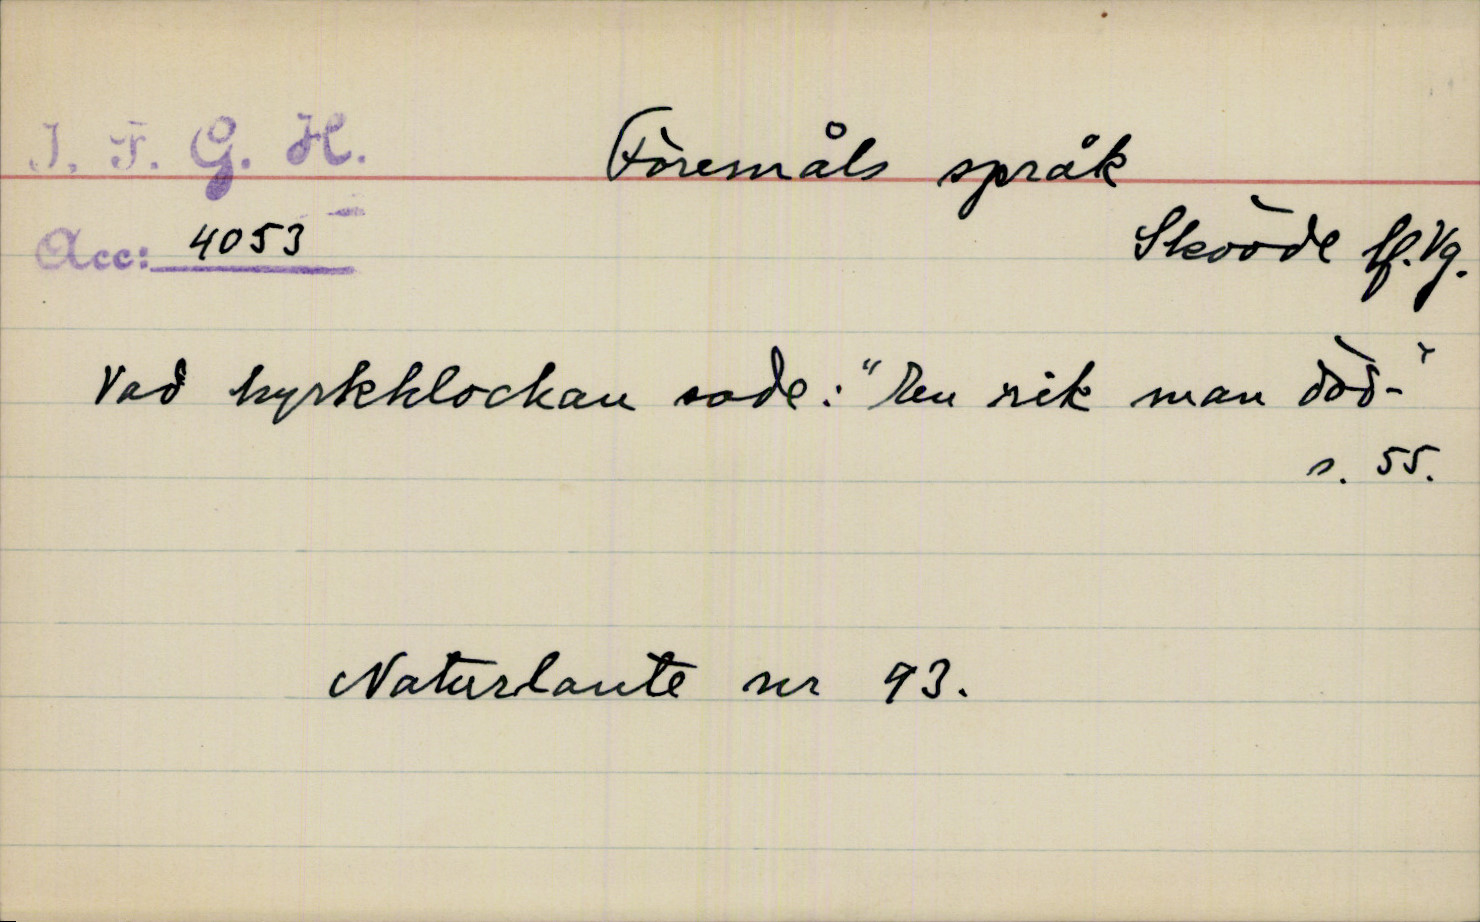 I. F. G. H.
Föremåls språk
Acc: 4053
Skövde sf. Vg.
Vad kyrkklockan sade: "En rik man död-"
s. 55.
Naturlaute nr 93.